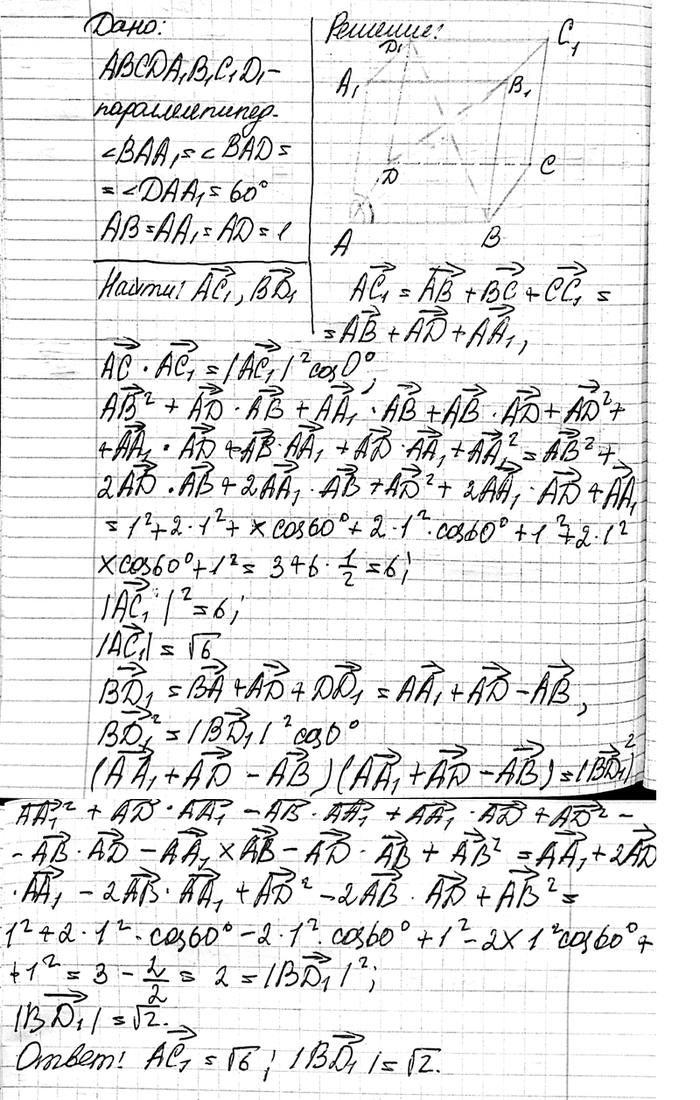 Дано:
ABCDA₁B₁C₁D₁ –
параллелепипед.
∠BAA₁ = ∠BAD =
= ∠DAA₁ = 60°
AB = AA₁ = AD = 1
Найти: AC₁, BD₁
Решение:
D₁ C₁
A₁ B₁
D C
A B
AC₁ = AB + BC + CC₁ =
= AB + AD + AA₁,
AC · AC₁ = |AC₁|² cos0°;
AB² + AD · AB + AA₁ · AB + AB · AD + AD² +
+ AA₁ · AD + AB · AA₁ + AD · AA₁ + AA₁² = AB² +
2AD · AB + 2AA₁ · AB + AD² + 2AA₁ · AD + AA₁
= 1² + 2 · 1² + × cos60° + 2 · 1² · cos60° + 1² + 2 · 1²
× cos60° + 1² = 3 + 6 · 1/2 = 6;
|AC₁|² = 6;
|AC₁| = √6
BD₁ = BA + AD + DD₁ = AA₁ + AD – AB,
BD₁² = |BD₁|² cos0°
(AA₁ + AD – AB)(AA₁ + AD – AB) = |BD₁|²
AA₁² + AD · AA₁ – AB · AA₁ + AA₁ · AD + AD² –
– AB · AD – AA₁ × AB – AD · AB + AB² = AA₁ + 2AD
· AA₁ – 2AB · AA₁ + AD² – 2AB · AD + AB² =
1² + 2 · 1² · cos60° – 2 · 1² · cos60° + 1² – 2 × 1² cos60° +
+ 1² = 3 – 2/2 = 2 = |BD₁|²;
|BD₁| = √2.
Ответ: AC₁ = √6; |BD₁| = √2.